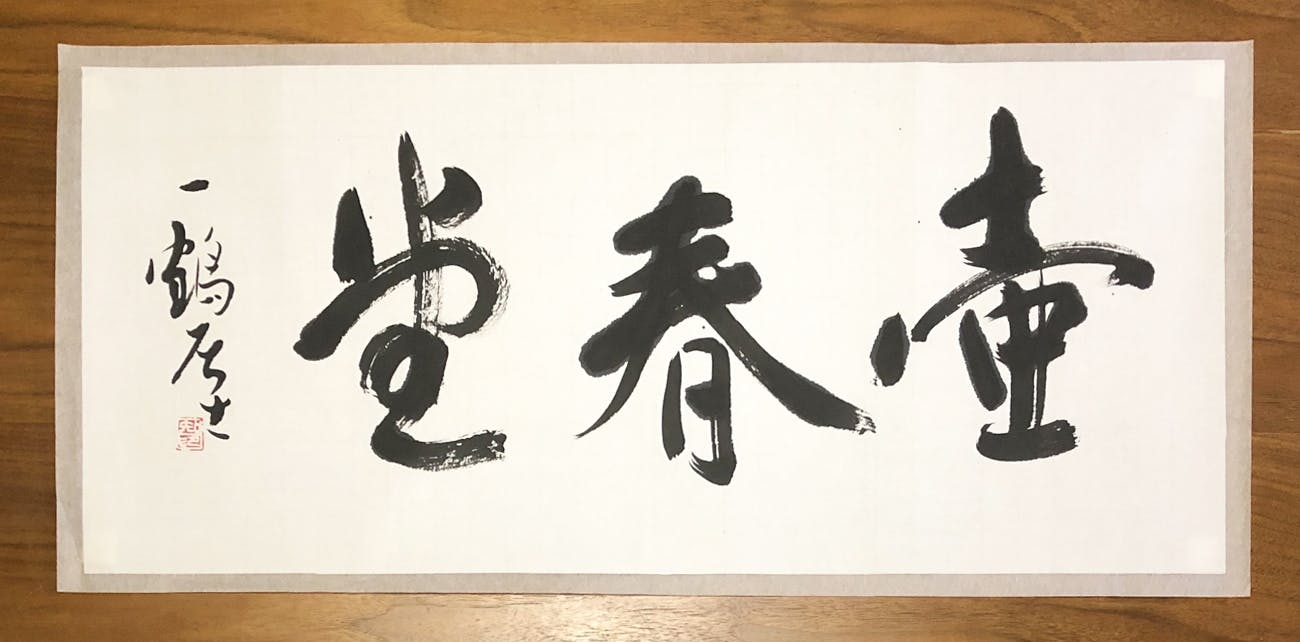 壺春堂
一鶴居士